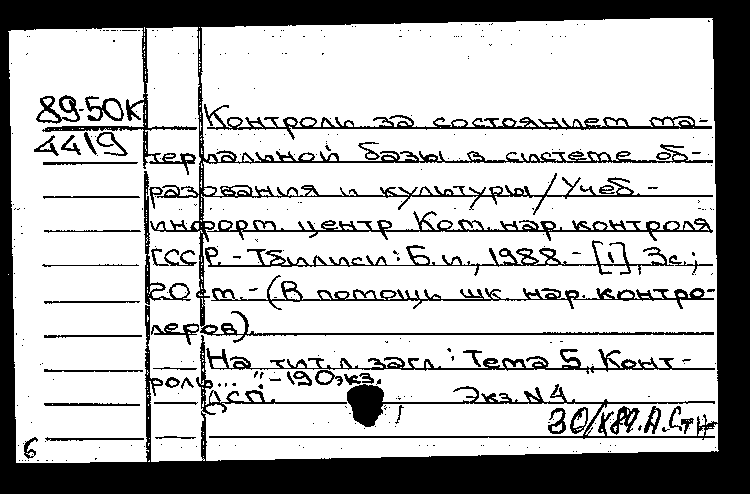 89-50К
4419
Контроль за состоянием ма-
териальной базы в системе об-
разования и культуры / Учеб.-
информ. центр Ком. нар. контроля
ГССР. - Тбилиси : Б. и., 1988. - [1], 3с.;
20 см. - (В помощь шк. нар. контро-
леров).
На тит. л. загл.: Тема 5 „Конт-
роль..." - 190 экз.
ДСП. ; Экз. N 4.
30/X89.
6